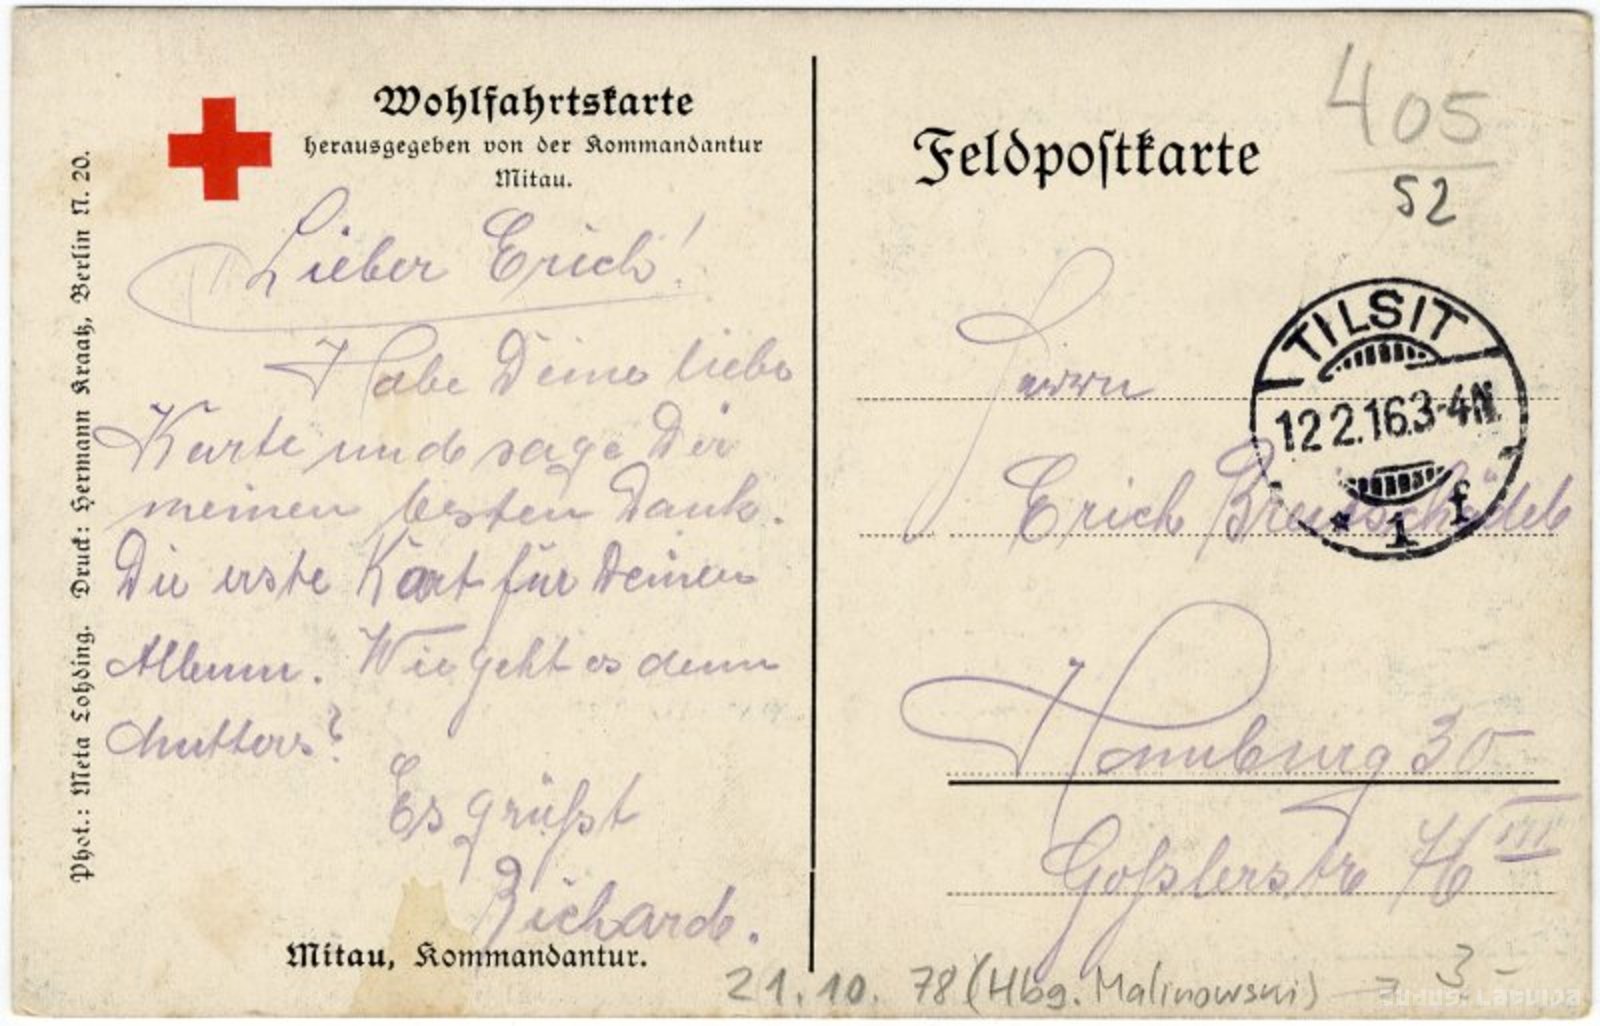 Wohlfahrtskarte
herausgegeben von der Kommandantur
Mitau.
Lieber Erich!
Habe Deine liebe
Karte und sage Dir
meinen besten Dank.
Die erste Kart für Deinen
Album. Wie geht es denn
Mutters?
Es grüßt
Richard.
Mitau, Kommandantur.
Phot.: Meta Lohding. Druck: Hermann Kraatz, Berlin N. 20.
Feldpostkarte
405
52
TILSIT
12 2.16.3-4N.
* 1 f
Herrn
Erich
Hamburg 30
Goßlerstr 76 III
21.10. 78 (Hbg. Malinowski) 3-